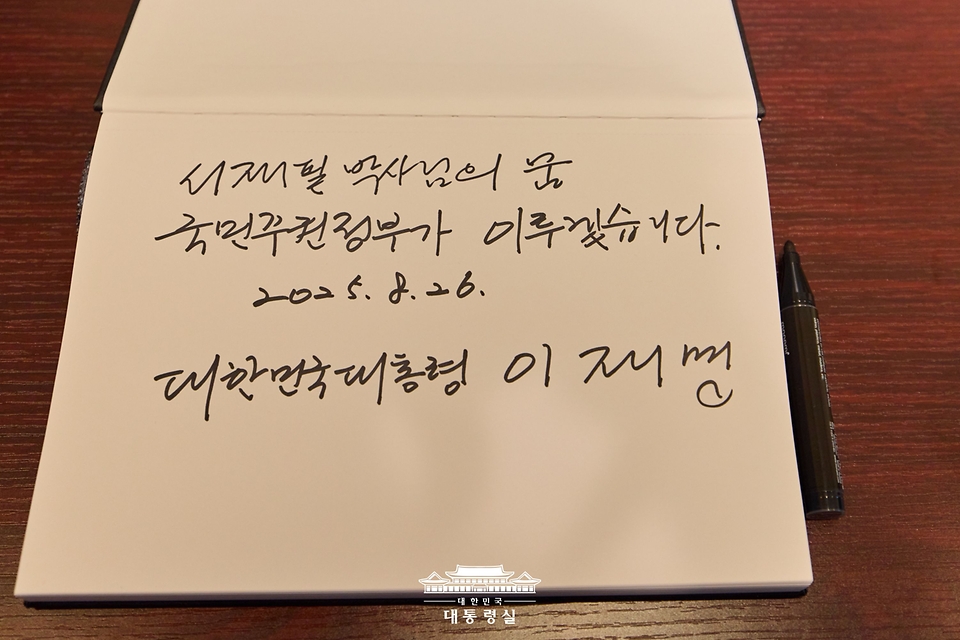 서재필 박사님의 꿈
국민주권정부가 이루겠습니다.
2025. 8. 26.
대한민국대통령 이재명
대한민국
대통령실